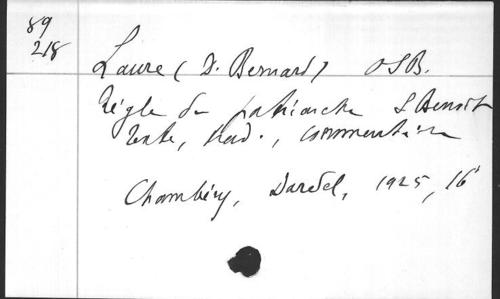 89
218
Laure (D. Bernard) OSB.
Règle du patriarche S Benoit
texte, trad., commentaire
Chambéry, Dardel, 1925, 16°